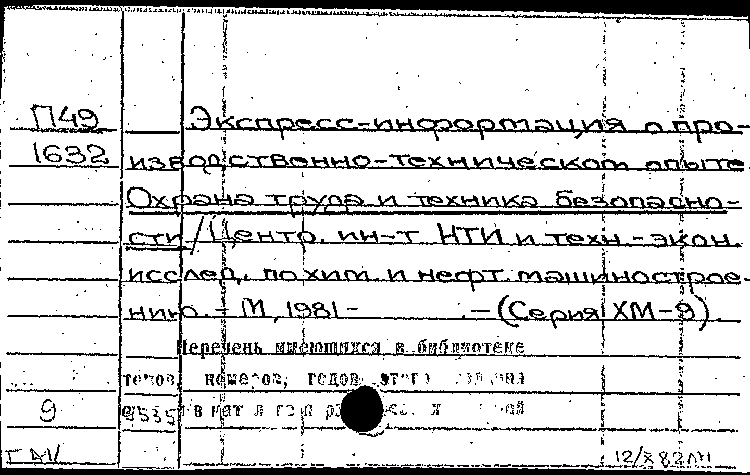 П49 Экспресс-информация о про-
1632 изводственно-техническом опыте
Охрана труда и техника безопасно-
сти / Центр. ин-т НТИ и техн.-экон.
исслед. по хим. и нефт. машинострое-
нию. - М, 1981 - . - (Серия ХМ-9).
Перечень имеющихся в библиотеке
томов, номеров, годов этого
9